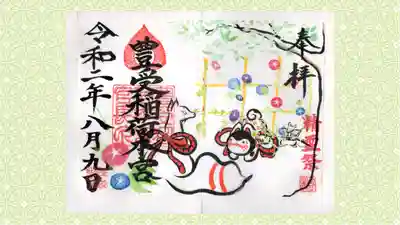 奉拝
豊受稲荷本宮
令和二年八月九日